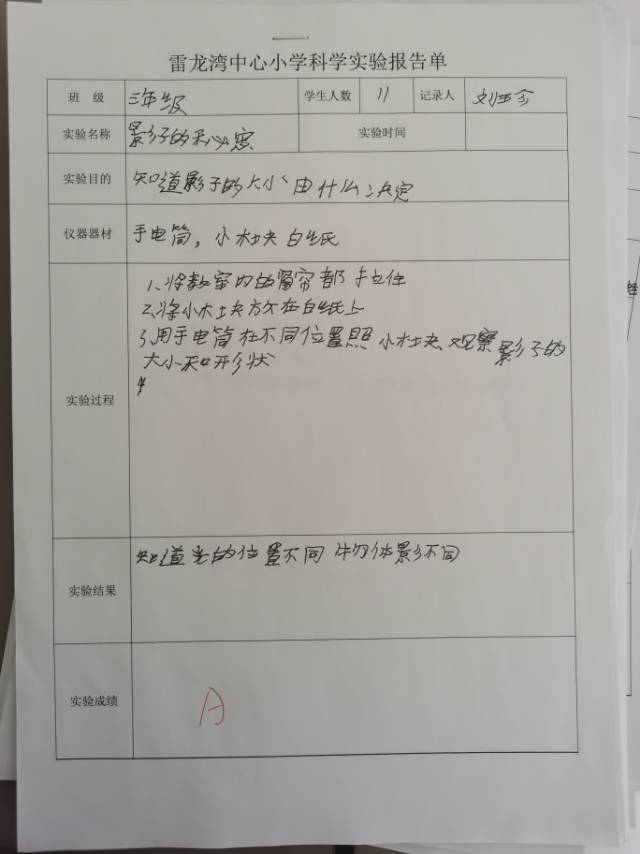 雷龙湾中心小学科学实验报告单
班 级 三年级 学生人数 11 记录人 刘
实验名称 影子的秘密 实验时间
实验目的 知道影子的大小由什么决定
仪器器材 手电筒，小木块 白纸
1、将教室内的窗帘都拉住
2、将小木块放在白纸上
3、用手电筒在不同位置照小木块、观察影子的
大小和形状
4
实验过程
知道光的位置不同 物体影子不同
实验结果
实验成绩 A